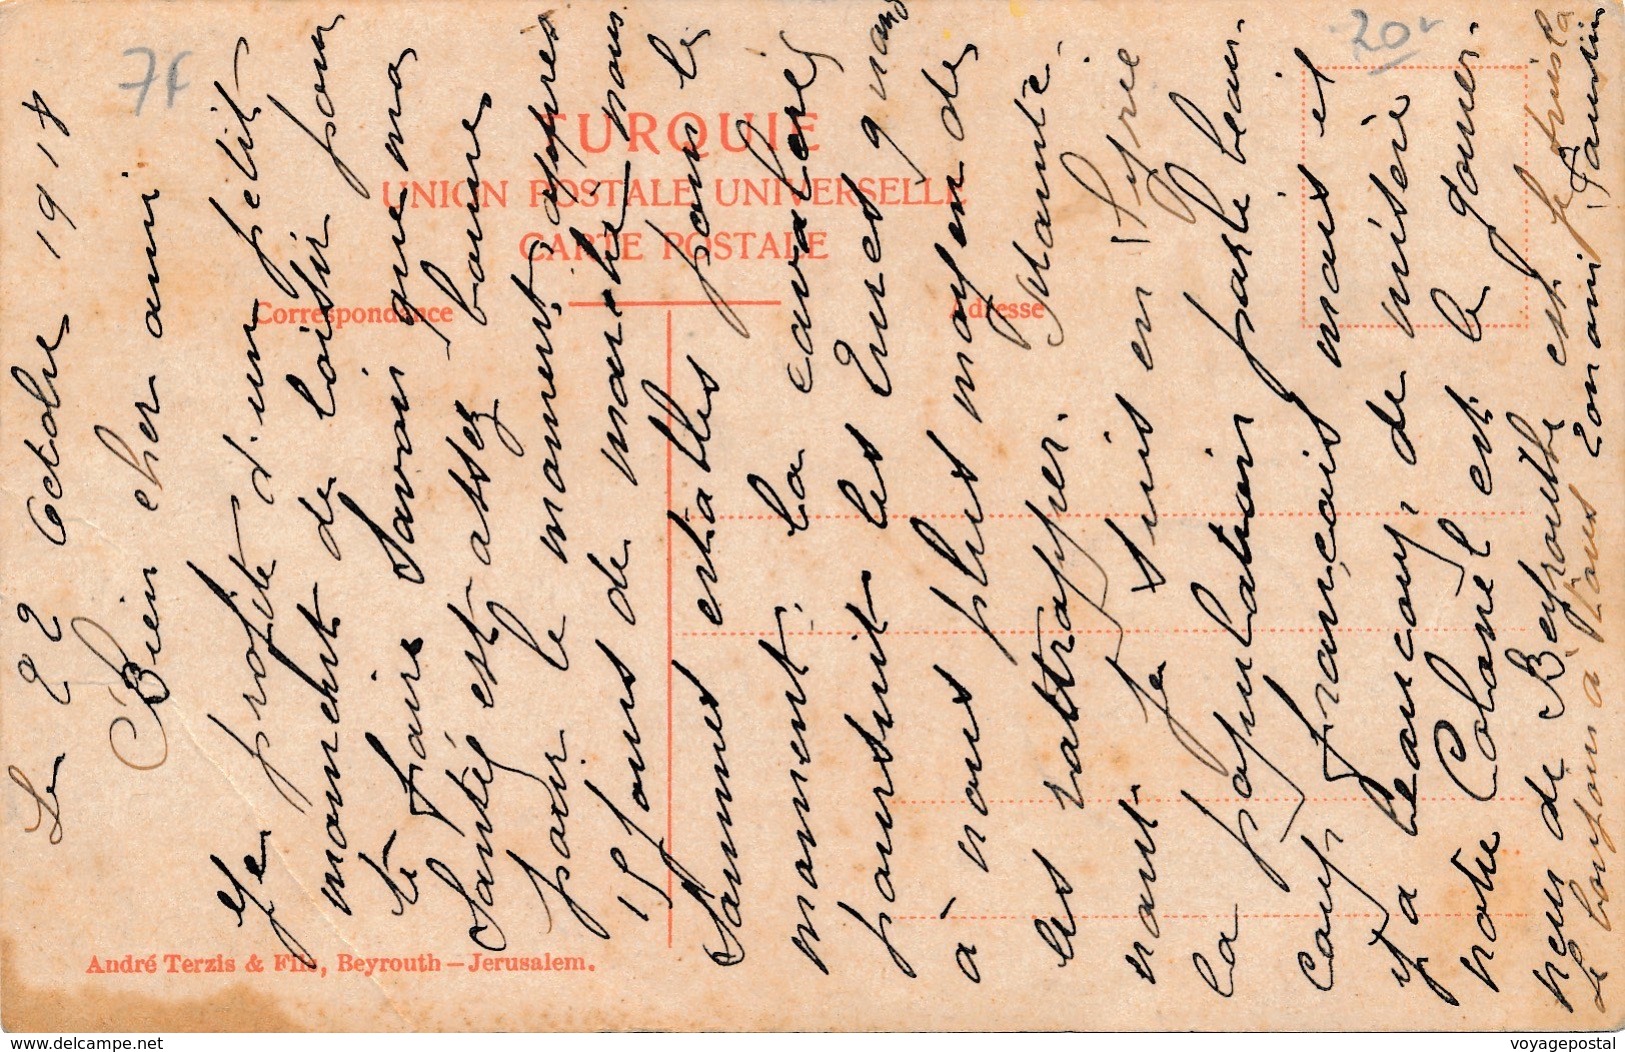 TURQUIE
UNION POSTALE UNIVERSELLE
CARTE POSTALE
Correspondance
Adresse
André Terzis & Fils, Beyrouth — Jerusalem.
7f
20
Le 22 Octobre 1918
Bien cher ami
Je profite d'un petit
moment de loisir pour
te faire savoir que ma
Santé est assez bonne
pour le moment, apprès
15 jours de marche nous
sommes entables pour le
moment. la cavalerie
poursuit les Turcs quand
à nous plus moyen de
les rattrapper.
maintenant je suis en Syrie
la population parle beau-
coup français mais il
y a beaucoup de misère
notre Colonel est le gouver-
neur de Beyrouth
Le bonjour a tous